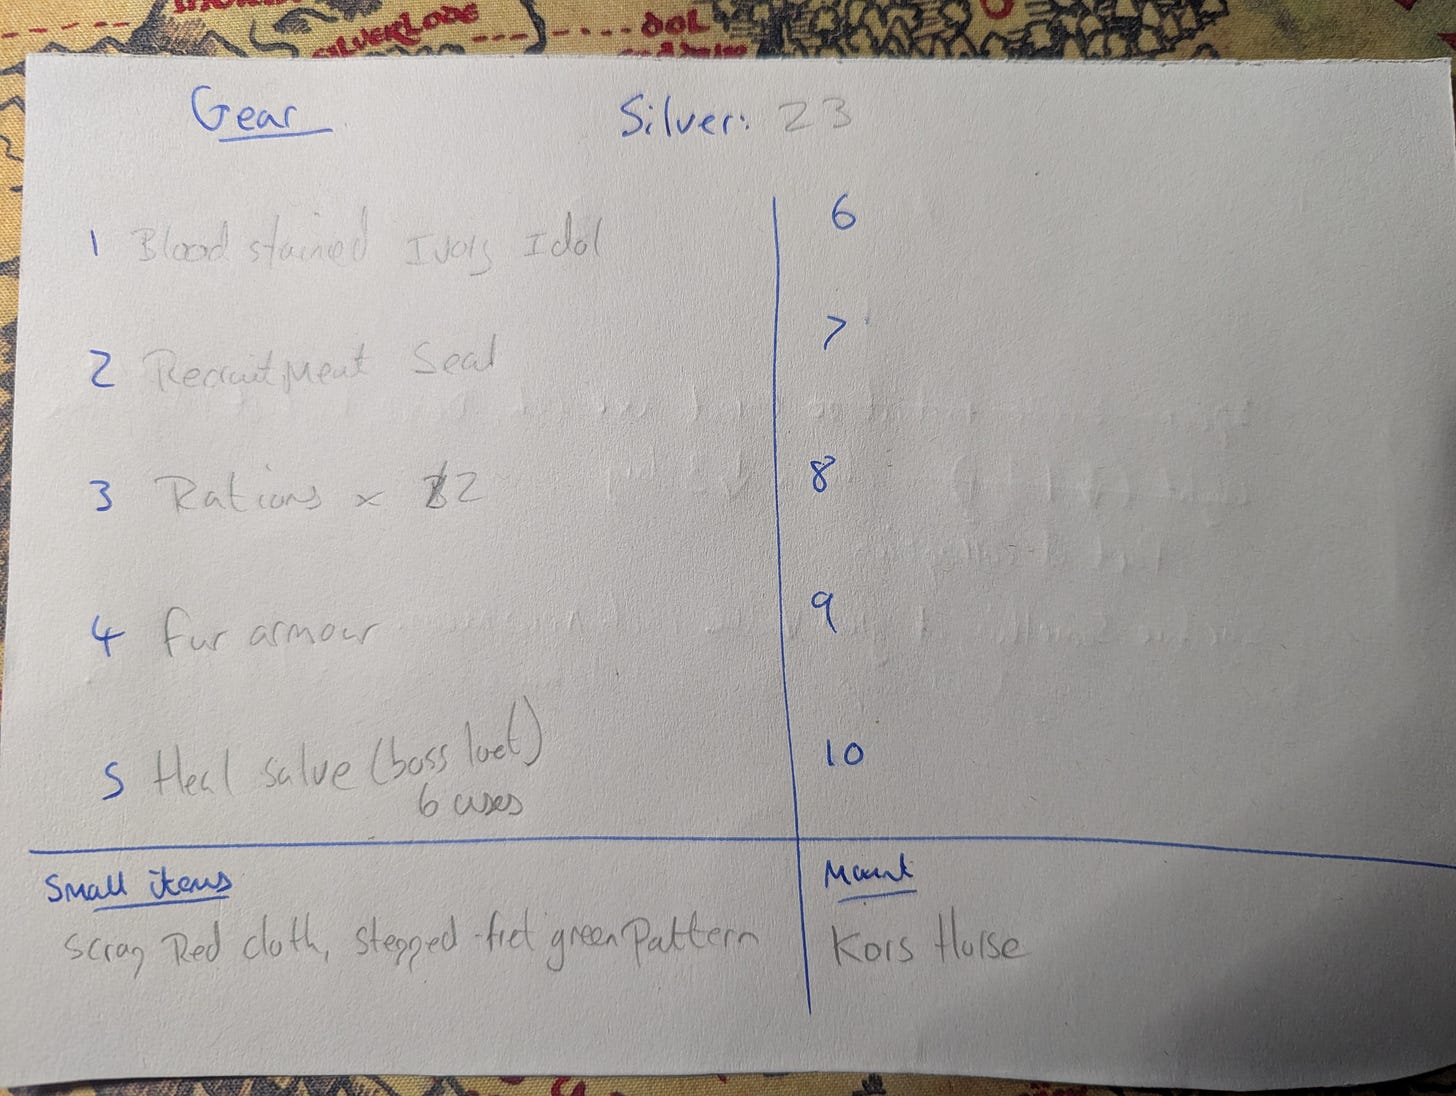 SILVERLODE
DOL
Gear
Silver: 23
1 Blood stained Ivory Idol
2 Recruitment Seal
3 Rations x 2
4 fur armour
5 Heal salve (boss loot)
6 uses
6
7
8
9
10
Small items
Scrap Red cloth, stepped-fret green Pattern
Mount
Kors Horse